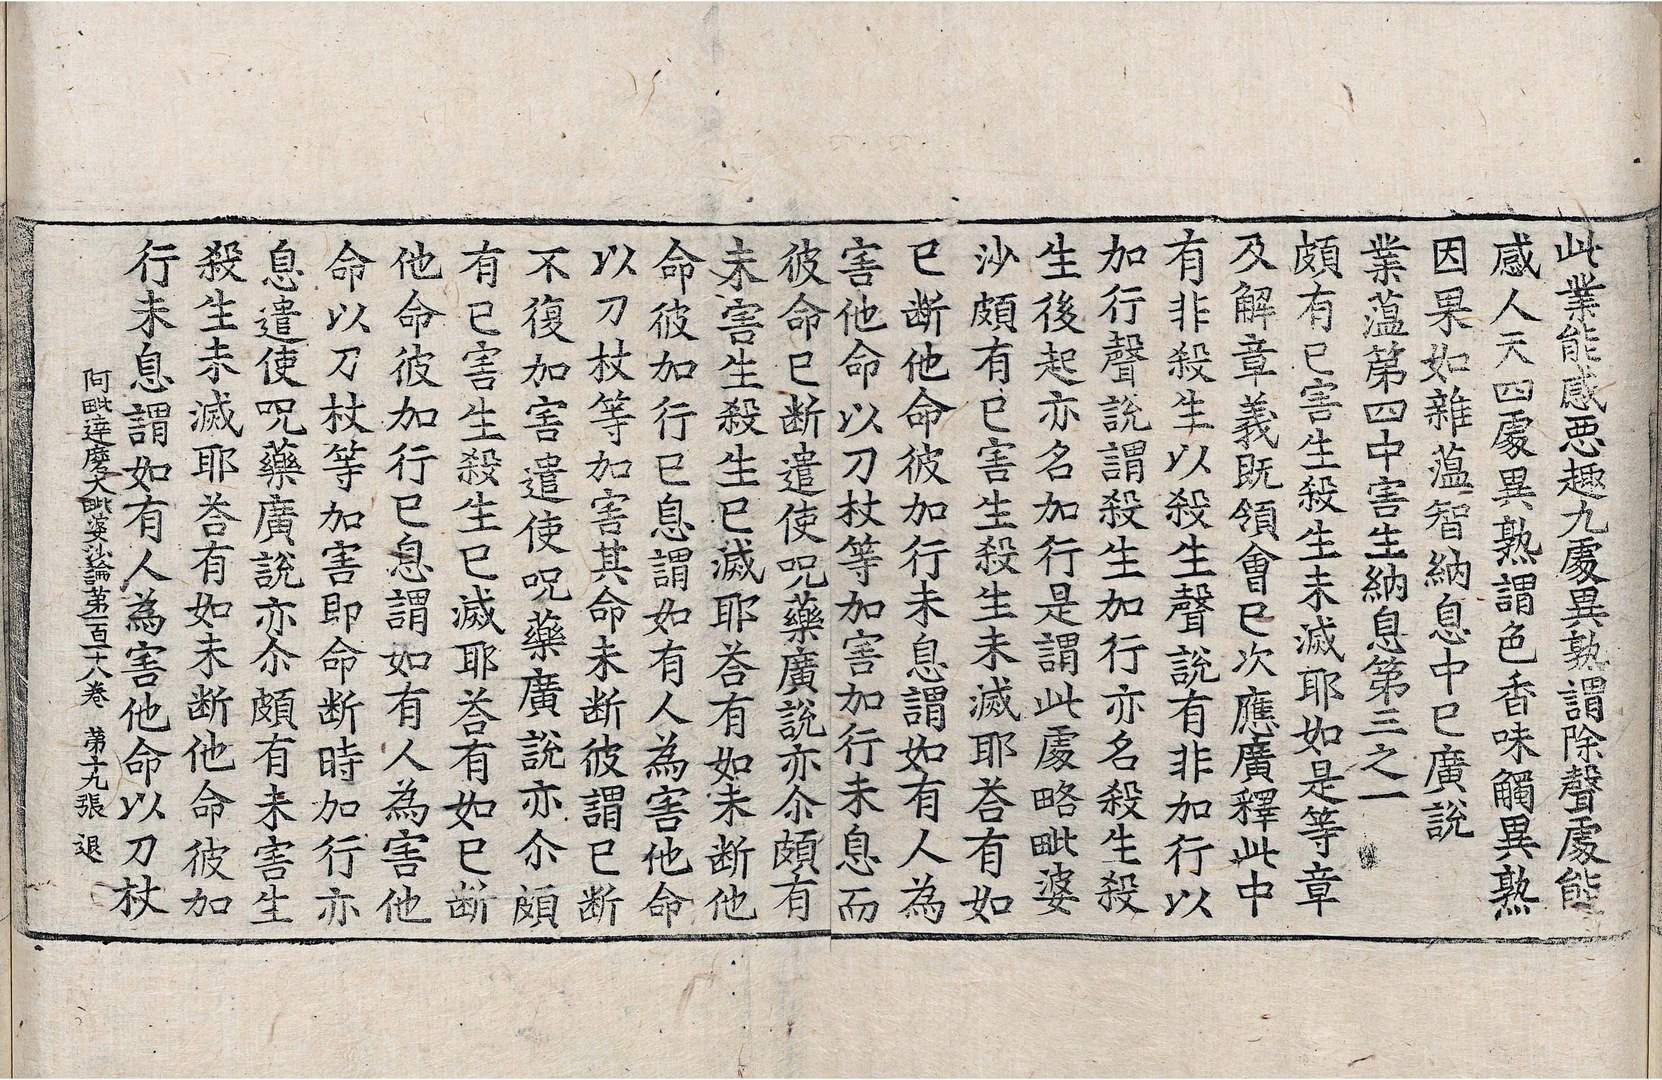 此業能感惡趣九處異熟謂除聲處能
感人天四處異熟謂色香味觸異熟
因果如雜薀智納息中已廣說
業薀第四中害生納息第三之一
頗有已害生殺生未滅耶如是等章
及解章義既領會已次應廣釋此中
有非殺生以殺生聲說有非加行以
加行聲說謂殺生加行亦名殺生殺
生後起亦名加行是謂此處略毗婆
沙頗有已害生殺生未滅耶荅有如
已断他命彼加行未息謂如有人為
害他命以刀杖等加害加行未息而
彼命已断遣使呪藥廣說亦尒頗有
未害生殺生已滅耶荅有如未断他
命彼加行已息謂如有人為害他命
以刀杖等加害其命未断彼謂已断
不復加害遣使呪藥廣說亦尒頗
有已害生殺生已滅耶荅有如已断
他命彼加行已息謂如有人為害他
命以刀杖等加害即命断時加行亦
息遣使呪藥廣說亦尒頗有未害生
殺生未滅耶荅有如未断他命彼加
行未息謂如有人為害他命以刀杖
阿毗達磨大毗婆沙論第一百十八卷 第十九張 退